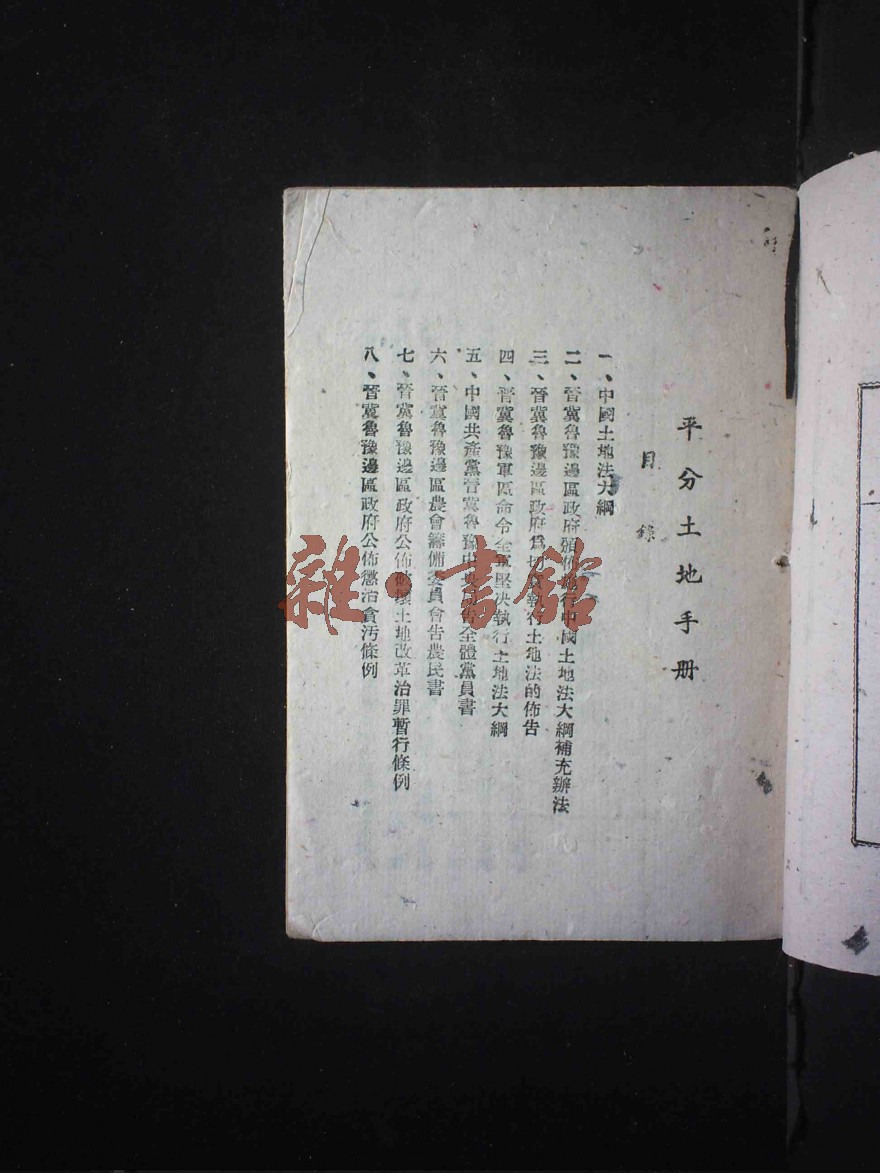 平分土地手册
目錄
一、中國土地法大綱
二、晉冀魯豫邊區政府頒佈施行中國土地法大綱補充辦法
三、晉冀魯豫邊區政府爲切實執行土地法的佈告
四、晉冀魯豫軍區命令全軍堅决執行土地法大綱
五、中國共產黨晉冀魯豫中央局告全體黨員書
六、晉冀魯豫邊區農會籌備委員會告農民書
七、晉冀魯豫邊區政府公佈破壞土地改革治罪暫行條例
八、晉冀魯豫邊區政府公佈懲治貪污條例
雜·書館